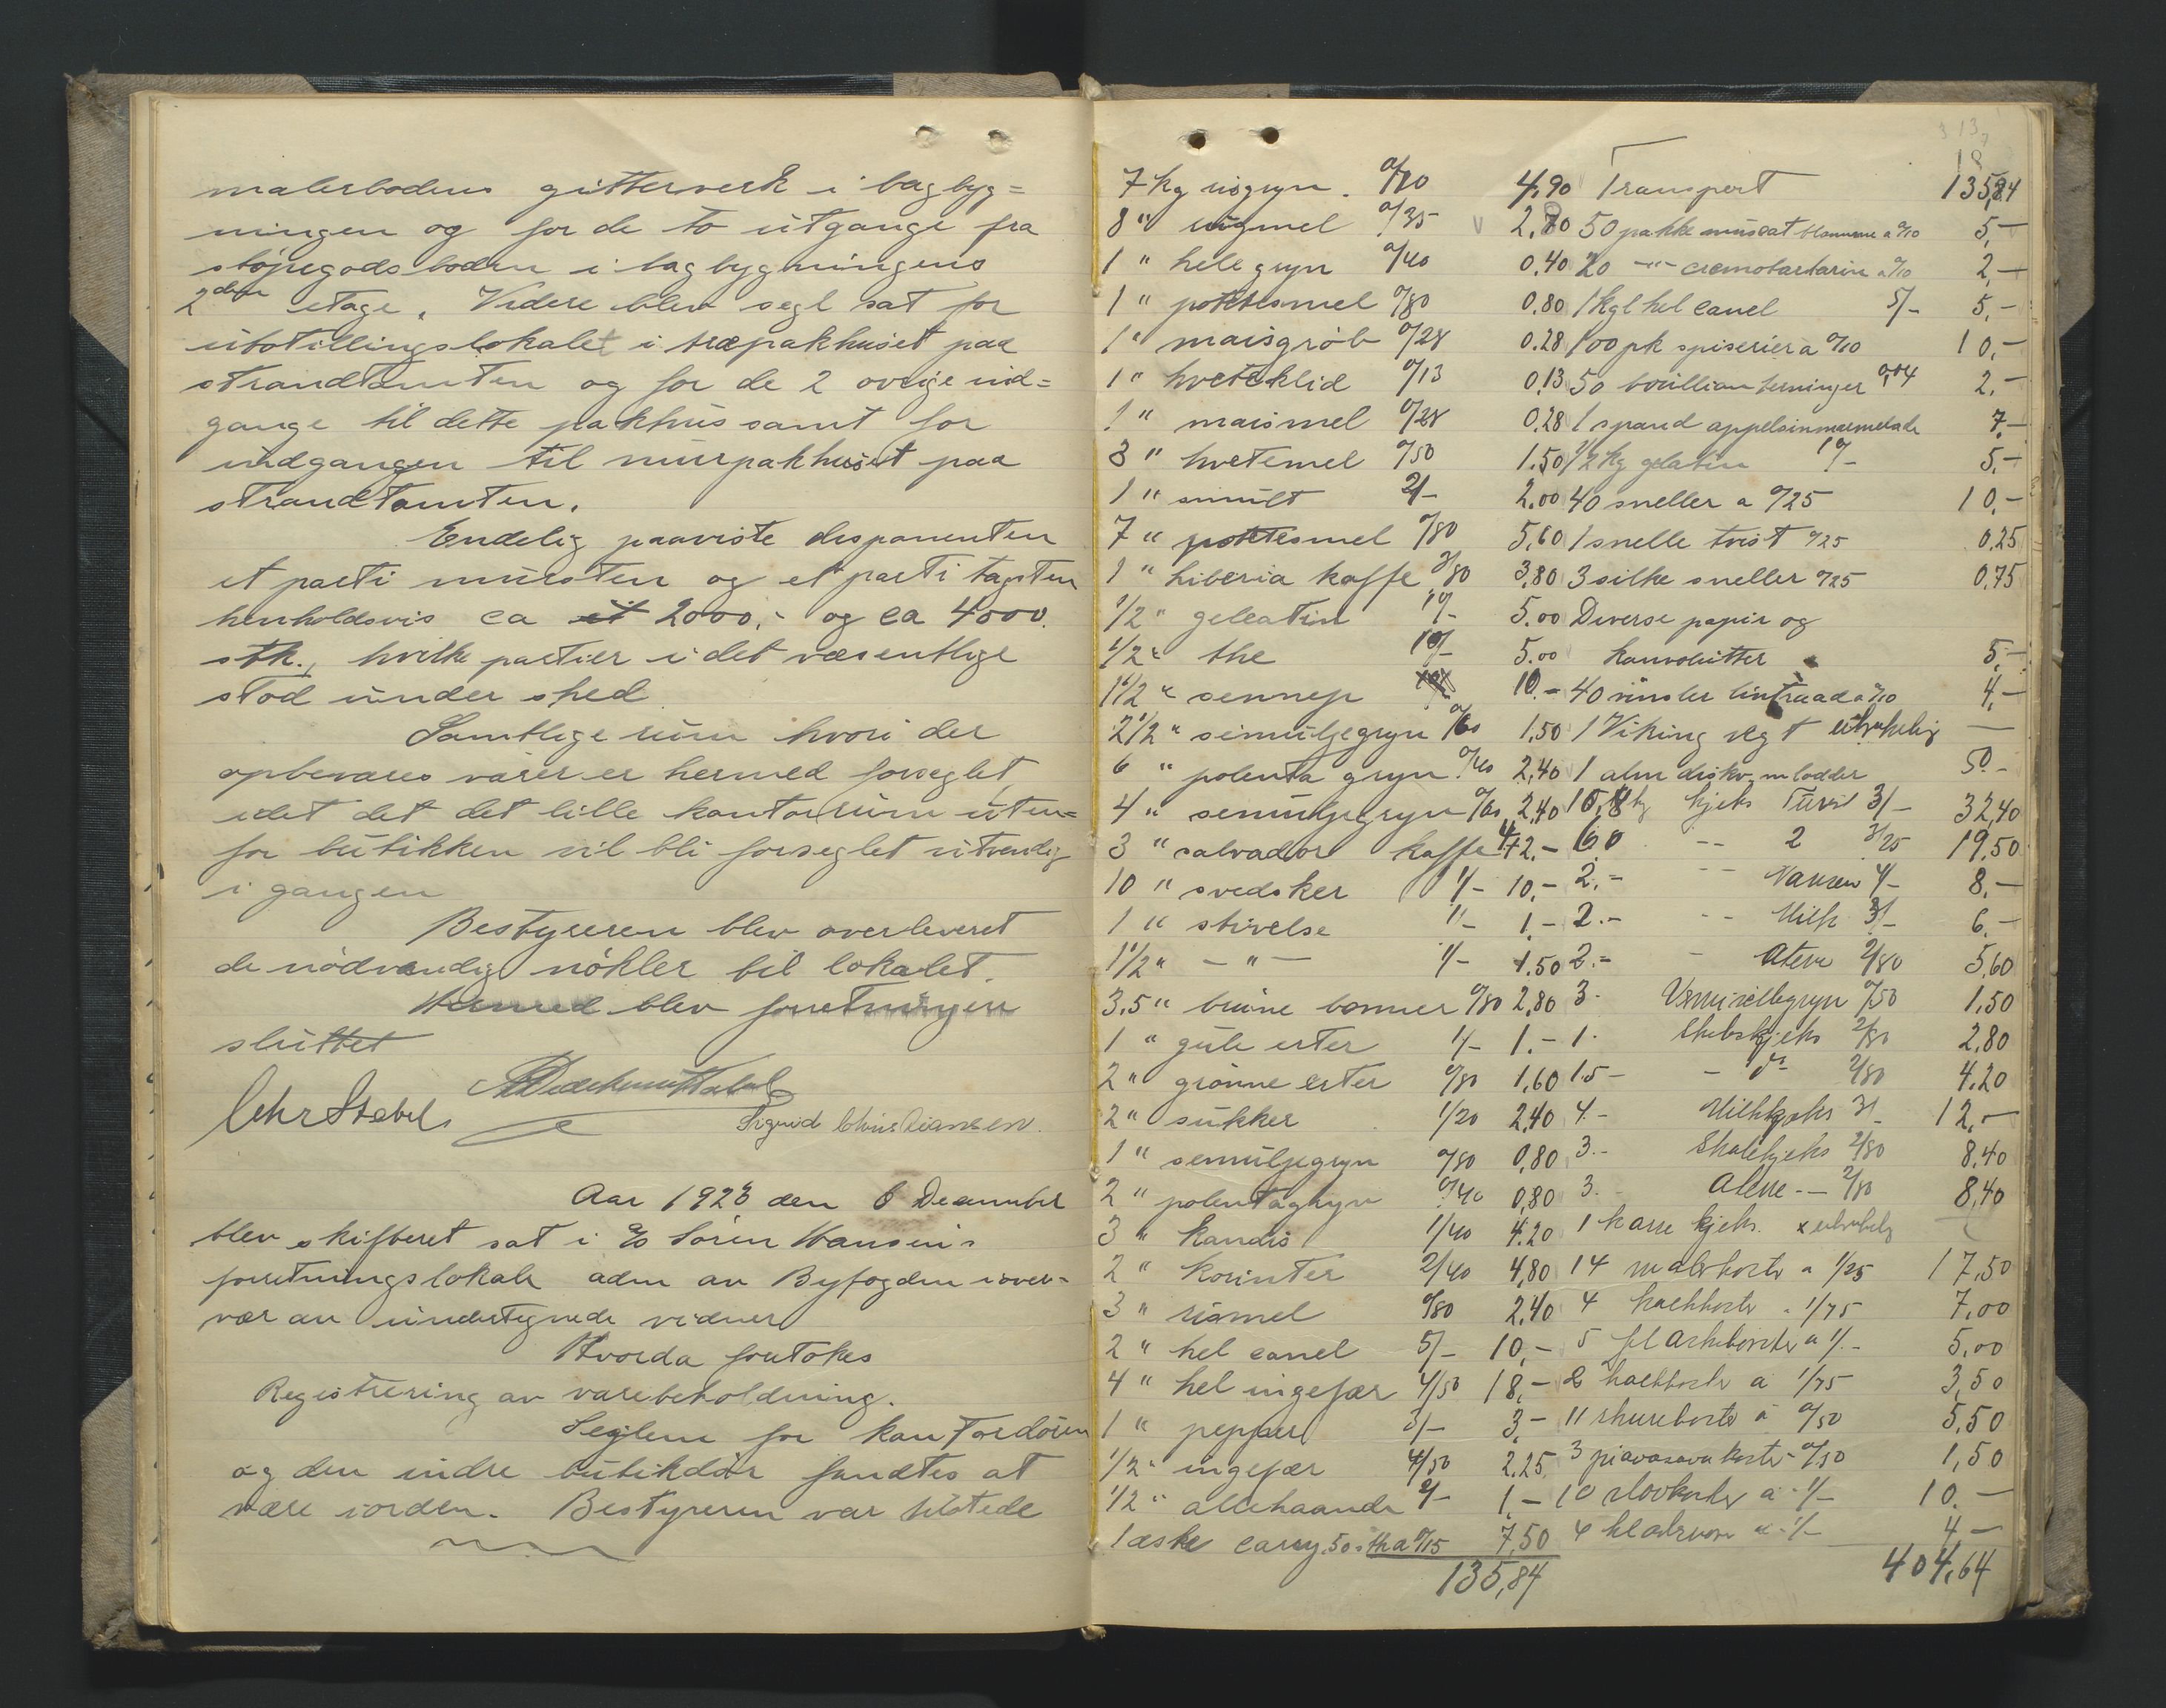 malerbodens gitterverk i bagbyg=
ningen og for de to utgange fra
støpegodsboden i bagbygningens
2den etage. Videre blev segl sat for
utstillingslokalet i træpakhuset paa
strandtomten og for de 2 øvrige ind=
gange til dette pakhus samt for
indgangen til murpakhuset paa
strandtomten.
Endelig paaviste disponenten
et parti mursten og et parti tagsten
henholdsvis ca et 2000,- og ca 4000
stk., hvilke partier i det væsentlige
stod under shed
Samtlige rum hvori der
opbevares varer er hermed forseglet
idet det det lille kontorrum uten=
for butikken vil bli forseglet utvendig
i gangen
Bestyreren blev overleveret
de nødvendig nøkler til lokalet.
Hermed blev forretningen
sluttet
Chr Stabel
Sigurd Christiansen.
Aar 1923 den 6 December
blev skifteret sat i Eo Søren Hansens
forretningslokale adm av Byfogden i over=
vær av undertegnede vidner
Hvorda foretokes
Registrering av varebeholdning.
Seglene for kontordøren
og den indre butikdør fandtes at
være iorden. Bestyreren var tilstede
7 kg risgryn. a 0/70 4,90
8 " rugmel 0/35 2,80
1 " hele gryn 0/40 0,40
1 " potetesmel 0/80 0,80
1 " maisgrøb 0/28 0.28
1 " hveteklid 0/13 0,13
1 " maismel 0/28 0.28
3 " hvetemel 0/50 1.50
1 " smult 2/- 2.00
7 " potetesmel 0/80 5,60
1 " liberia kaffe 3/80 3,80
1/2 " geleatin 10/- 5.00
1/2 " the 10/- 5.00
1 1/2 " sennep 10.-
2 1/2 " semuljegryn 0/60 1,50
6 " polenta gryn 0/40 2,40
4 " semuljegryn 0/60 2,40
3 " salvador kaffe 4/- 12,-
10 " svedsker 1/- 10,-
1 " stivelse 1/- 1.-
1 1/2 " - " - 1/- 1.50
3,5 " brune bønner 0/80 2,80
1 " gule erter 1/- 1.-
2 " grønne erter 0/80 1,60
2 " sukker 1/20 2,40
1 " semuljegryn 0/80 0,80
2 " polentagryn 0/40 0,80
3 " kandis 1/40 4.20
2 " korinter 2/40 4,80
3 " rismel 0/80 2,40
2 " hel canel 5/- 10,-
4 " hel ingefær 4/50 18,-
1 " pepper 3/- 3,-
1/2 " ingefær 4/50 2.25
1/2 " allehaande 2/- 1,-
1 æske carry 50 stk a 0/15 7,50
135,84
Transport 135,84
50 pakke muscat blomme a 0/10 5,-
20 -"- cremotartarin a 0/10 2,-
1 kgl hel canel 5/- 5,-
100 pk spiserier a 0/10 10,-
50 bouillion terninger 0,04 2,-
1 spand appelsinmarmelade 7,-
1/2 kg gelatin 10/- 5,-
40 sneller a 0/25 10,-
1 snelle tvist 0/25 0,25
3 silke sneller 0/25 0,75
Diverse papir og
konvolutter 5,-
40 rinsler lintraad a 0/10 4,-
1 Viking vegt ubrukelig -
1 alm diskv. m lodder 50.-
10,8 kg kjeks Turist 3/- 32,40
6,0 -- 2 3/25 19,50
2.- -- Nansen 4/- 8,-
2.- -- Milk 3/- 6.-
2.- - Atene 2/80 5,60
3. Vermicellegryn 0/50 1,50
1. Skibskjeks 2/80 2,80
1.5 - do 2/80 4.20
4.- Milkkjeks 3/- 12,-
3.- Skolekjeks 2/80 8,40
3. Atene -- 2/80 8,40
1 kasse kjeks. x ubrukelig
14 malekoste a 1/25 17,50
4 kalkkoste a 1/75 7,00
5 flaskekoster a 1/- 5,00
2 kalkkoste a 1/75 3,50
11 skurekoste a 0/50 5,50
3 piavasava koste - 0/50 1,50
10 stovkoster a 1/- 10.-
4 a 1/- 4-
404,64